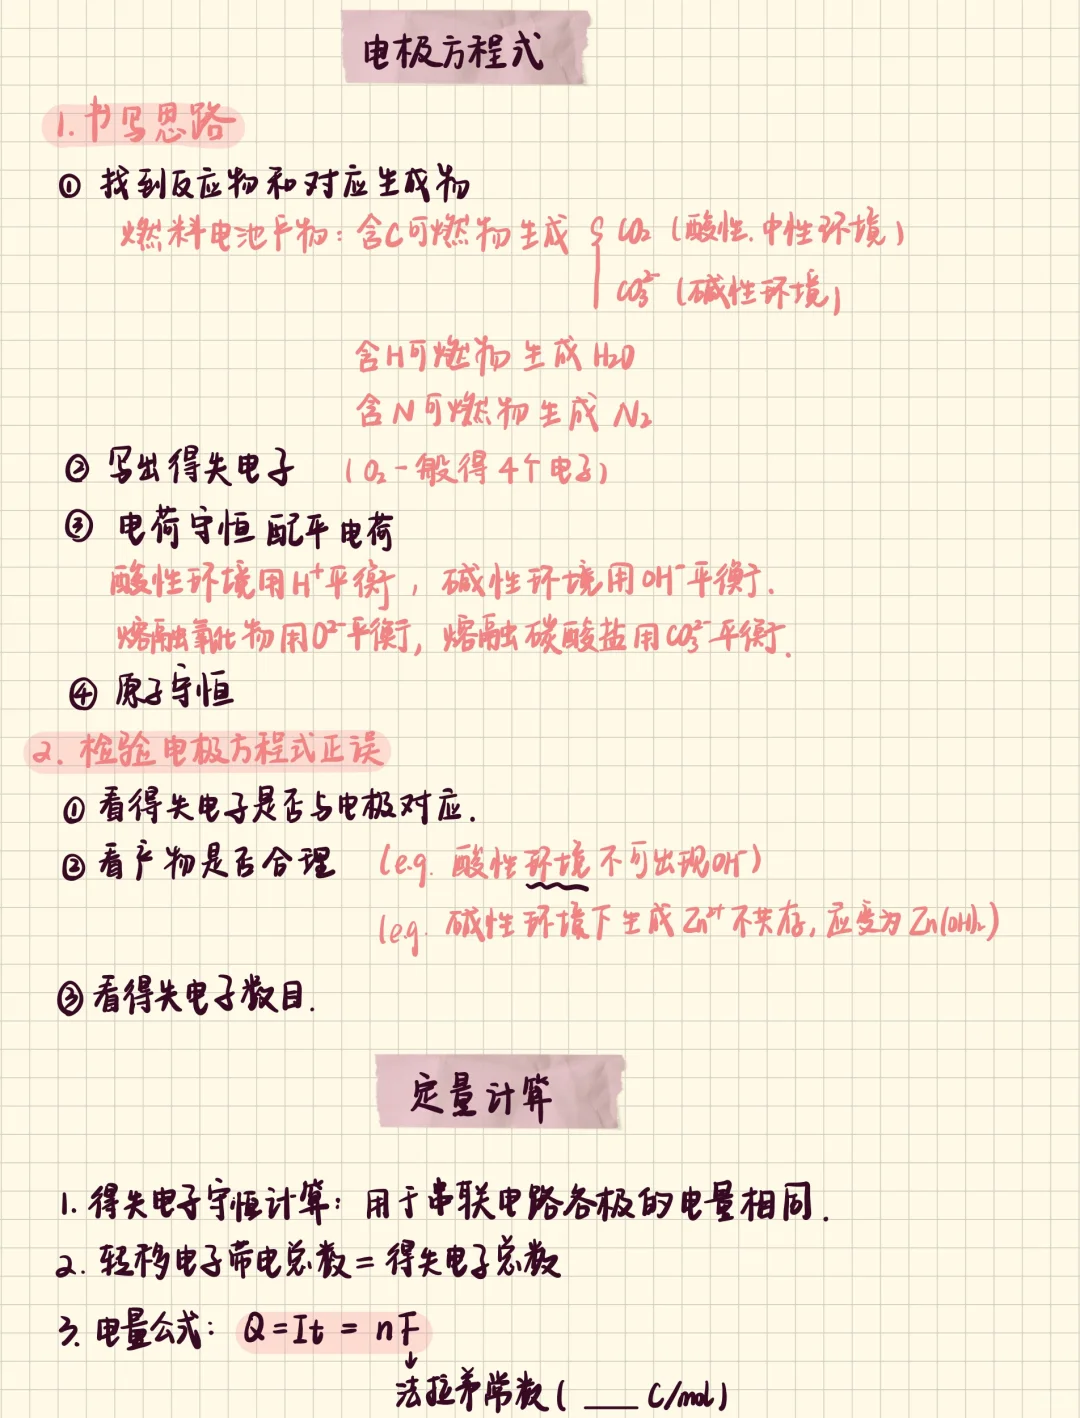 电极方程式
1. 书写思路
① 找到反应物和对应生成物
燃料电池产物：含C可燃物生成 { CO₂（酸性.中性环境）
CO₃²⁻（碱性环境）
含H可燃物生成 H₂O
含N可燃物生成 N₂
② 写出得失电子（O₂一般得4个电子）
③ 电荷守恒配平电荷
酸性环境用H⁺平衡，碱性环境用OH⁻平衡.
熔融氧化物用O²⁻平衡，熔融碳酸盐用CO₃²⁻平衡.
④ 原子守恒
2. 检验电极方程式正误
① 看得失电子是否与电极对应.
② 看产物是否合理（e.g. 酸性环境不可出现OH⁻）
（e.g. 碱性环境下生成Zn²⁺不共存，应变为Zn(OH)₂）
③ 看得失电子数目.
定量计算
1. 得失电子守恒计算：用于串联电路各极的电量相同.
2. 转移电子带电总数＝得失电子总数
3. 电量公式：Q＝It＝nF
↓
法拉第常数（ ___ C/mol）